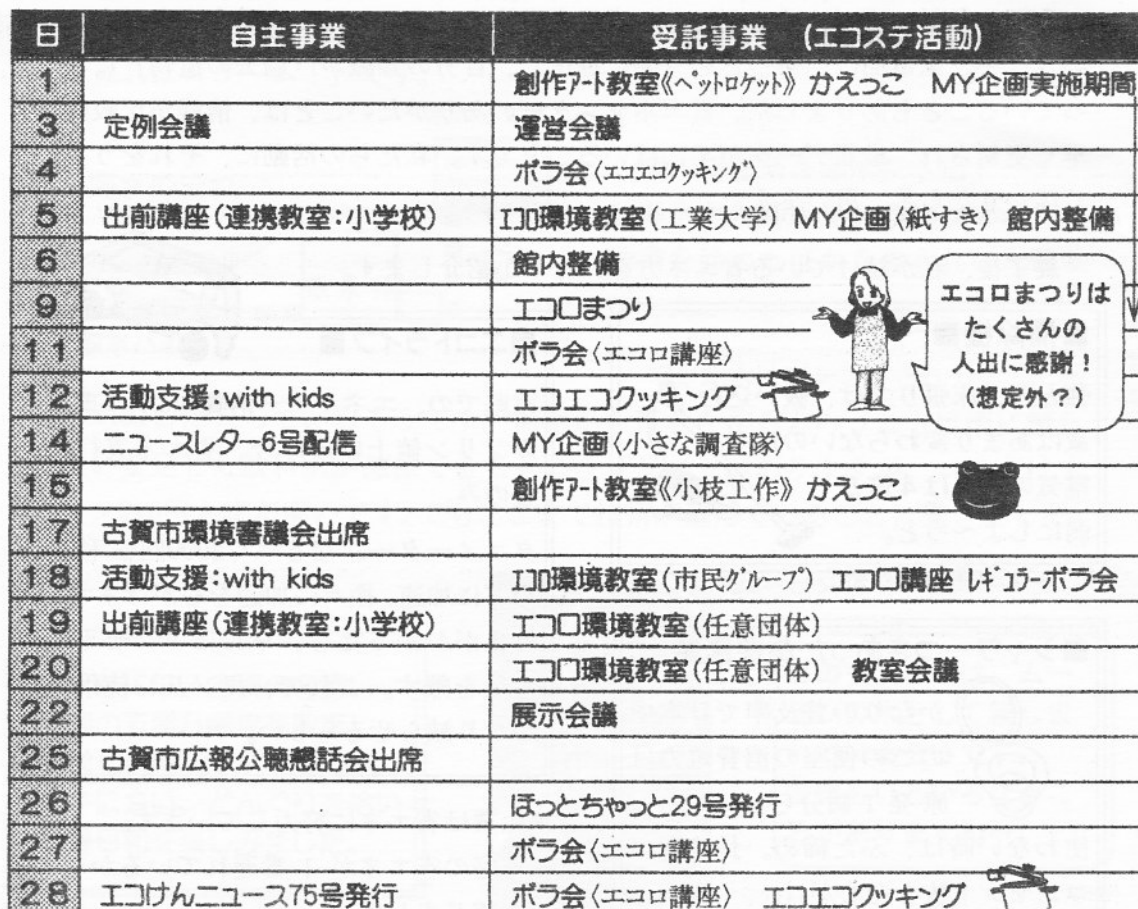 日 自主事業 受託事業 (エコステ活動)
1 創作アート教室《ペットロケット》 かえっこ MY企画実施期間
3 定例会議 運営会議
4 ボラ会〈エコエコクッキング〉
5 出前講座(連携教室:小学校) エコロ環境教室(工業大学) MY企画〈紙すき〉 館内整備
6 館内整備
9 エコロまつり
11 ボラ会〈エコロ講座〉
12 活動支援:with kids エコエコクッキング
14 ニュースレター6号配信 MY企画〈小さな調査隊〉
15 創作アート教室《小枝工作》 かえっこ
17 古賀市環境審議会出席
18 活動支援:with kids エコロ環境教室(市民グループ) エコロ講座 レギュラーボラ会
19 出前講座(連携教室:小学校) エコロ環境教室(任意団体)
20 エコロ環境教室(任意団体) 教室会議
22 展示会議
25 古賀市広報公聴懇話会出席
26 ほっとちゃっと29号発行
27 ボラ会〈エコロ講座〉
28 エコけんニュース75号発行 ボラ会〈エコロ講座〉 エコエコクッキング
エコロまつりは
たくさんの
人出に感謝!
(想定外?)